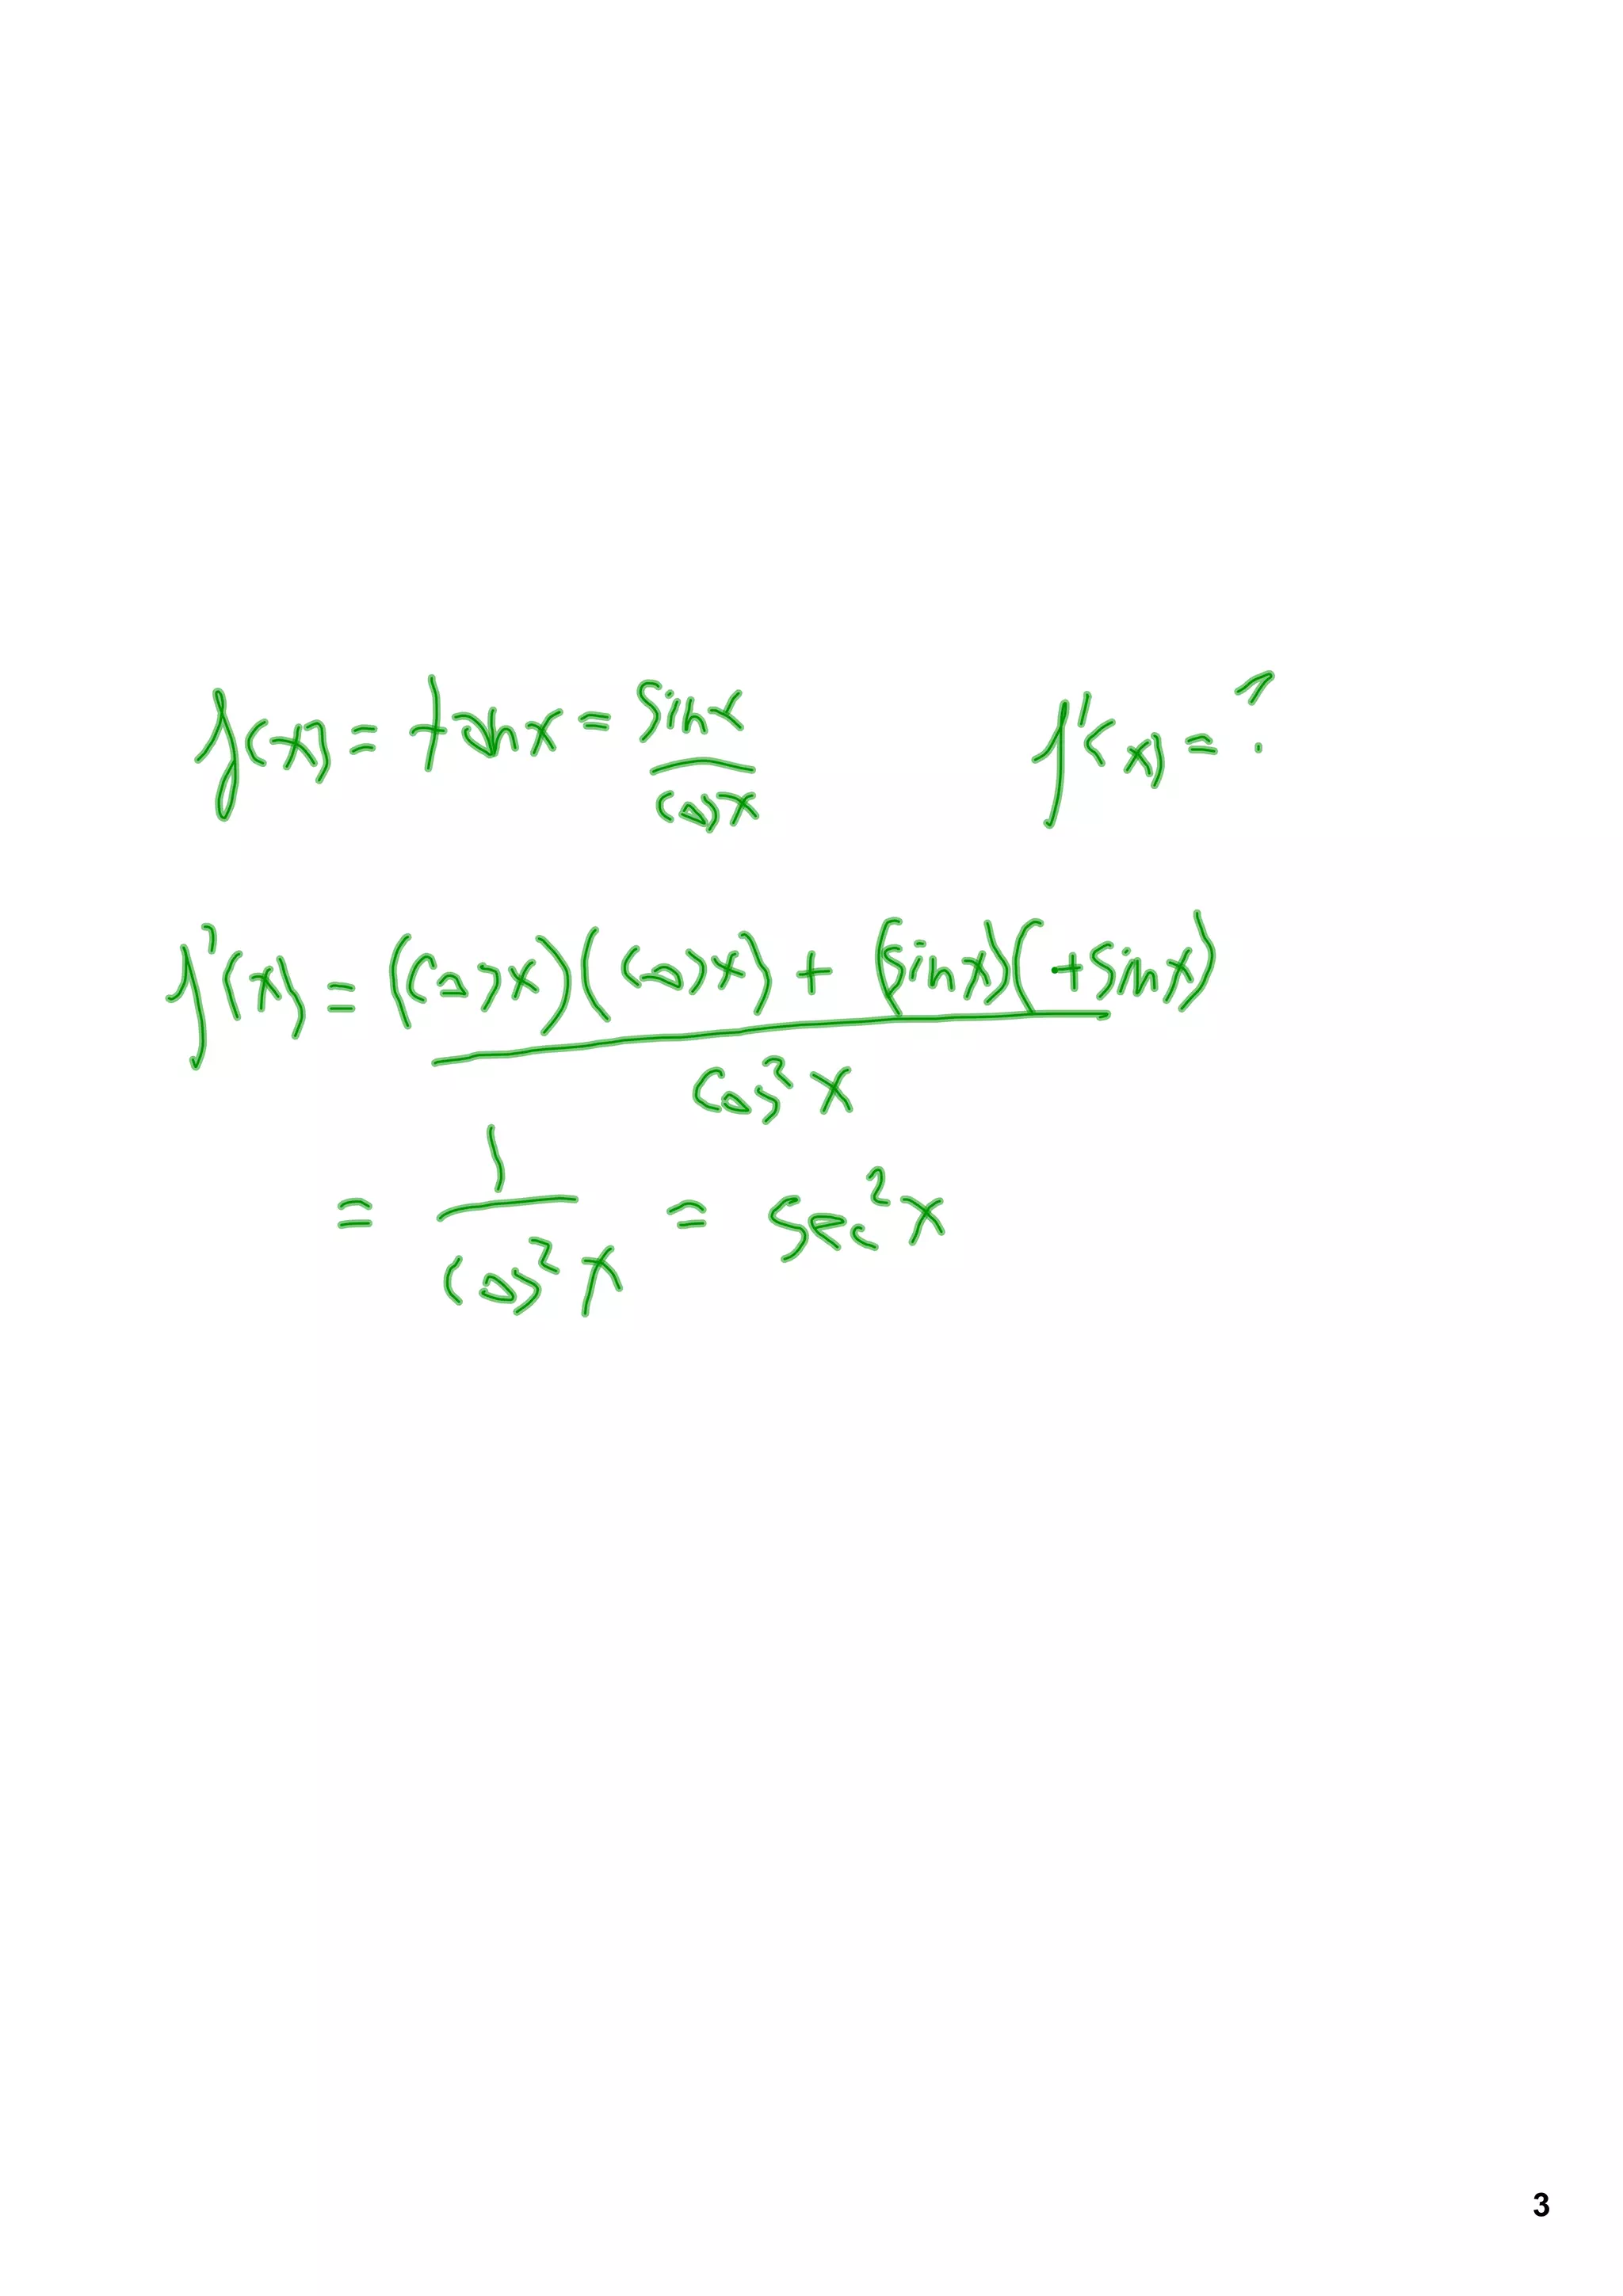 f(x) = tan x = sin x / cos x f'(x) = ?
f'(x) = (cos x)(cos x) + (sin x)(+sin x) / cos² x
= 1 / cos² x = sec² x
3